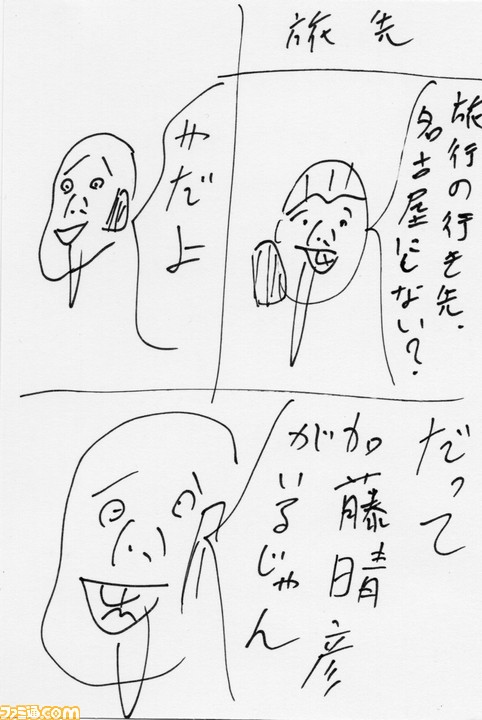 旅先
旅行の行き先、
名古屋にしない?
やだよ
だって
加藤晴彦
がいるじゃん
ファミ通.com